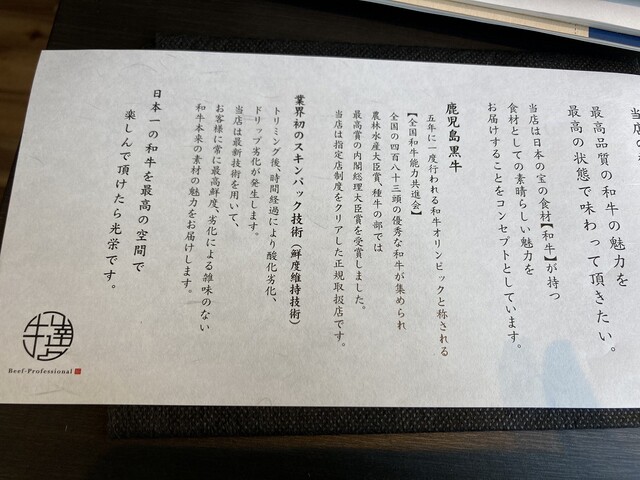 当店の
最高品質の和牛の魅力を
最高の状態で味わって頂きたい。
当店は日本の宝の食材【和牛】が持つ
食材としての素晴らしい魅力を
お届けすることをコンセプトとしています。
鹿児島黒牛
五年に一度行われる和牛オリンピックと称される
【全国和牛能力共進会】
全国の四百八十三頭の優秀な和牛が集められ
農林水産大臣賞、種牛の部では
最高賞の内閣総理大臣賞を受賞しました。
当店は指定店制度をクリアした正規取扱店です。
業界初のスキンパック技術(鮮度維持技術)
トリミング後、時間経過により酸化劣化、
ドリップ劣化が発生します。
当店は最新技術を用いて、
お客様に常に最高鮮度、劣化による雑味のない
和牛本来の素材の魅力をお届けします。
日本一の和牛を最高の空間で
楽しんで頂けたら光栄です。
牛達
Beef-Professional